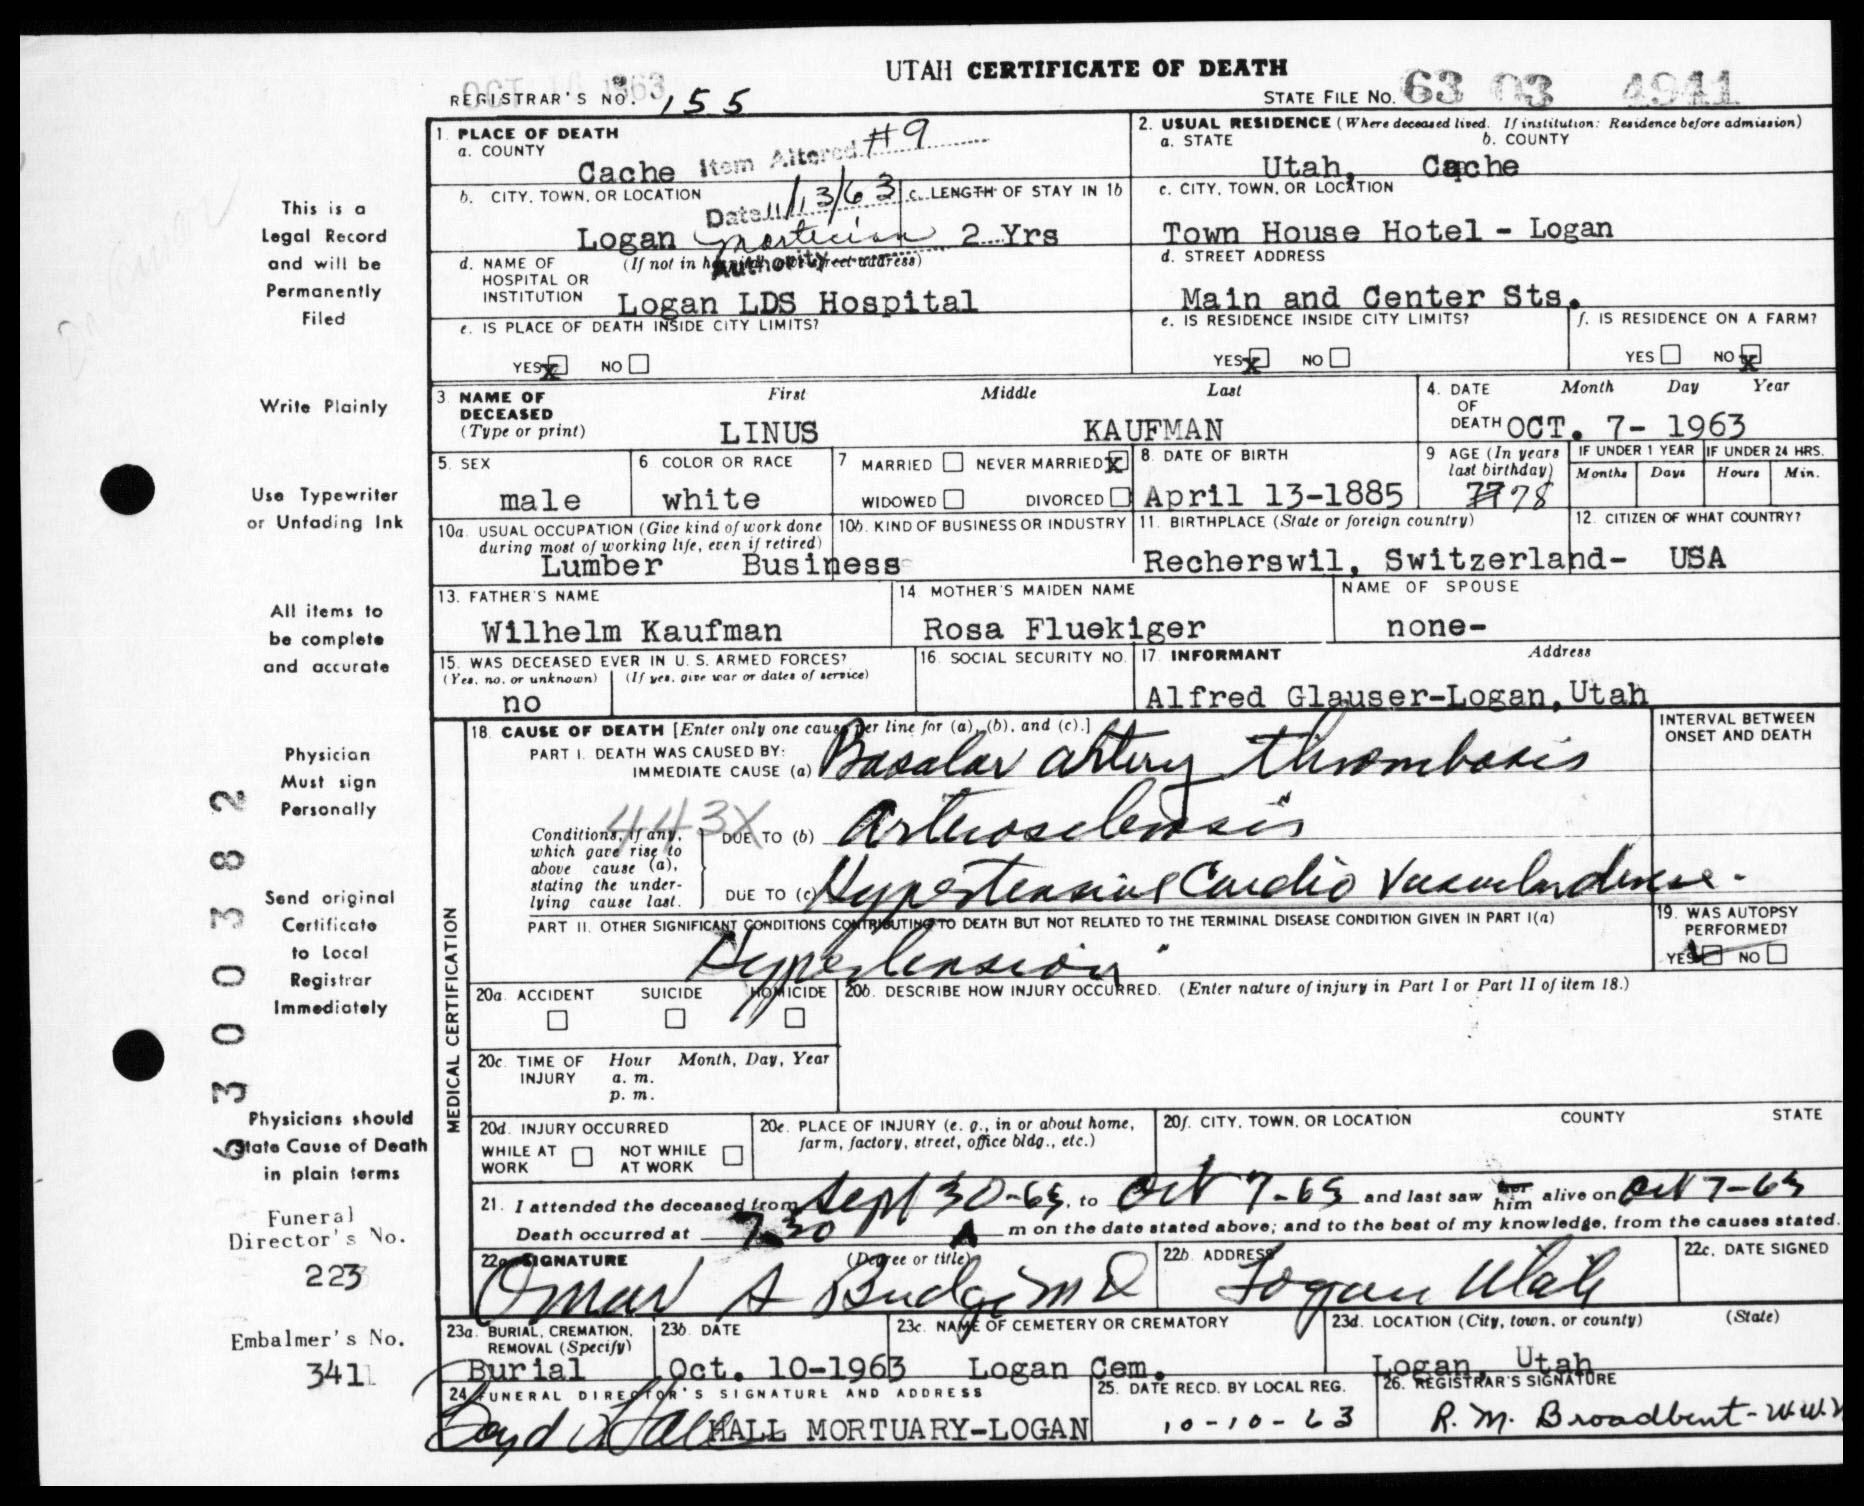 OCT 16 1963
UTAH CERTIFICATE OF DEATH
REGISTRAR'S NO. 155
STATE FILE NO. 63 03 4941
1. PLACE OF DEATH
a. COUNTY
Cache
Item Altered #9
2. USUAL RESIDENCE (Where deceased lived. If institution: Residence before admission)
a. STATE b. COUNTY
Utah, Cache
b. CITY, TOWN, OR LOCATION
Logan
Date 11/13/63
mortician
Authority
c. LENGTH OF STAY IN 1b
2 Yrs
c. CITY, TOWN, OR LOCATION
Town House Hotel - Logan
d. NAME OF HOSPITAL OR INSTITUTION (If not in hospital, give street address)
Logan LDS Hospital
d. STREET ADDRESS
Main and Center Sts.
e. IS PLACE OF DEATH INSIDE CITY LIMITS?
YES X NO
e. IS RESIDENCE INSIDE CITY LIMITS?
YES X NO
f. IS RESIDENCE ON A FARM?
YES NO X
3. NAME OF DECEASED (Type or print)
First Middle Last
LINUS KAUFMAN
4. DATE OF DEATH Month Day Year
OCT. 7- 1963
5. SEX
male
6 COLOR OR RACE
white
7 MARRIED NEVER MARRIED X
WIDOWED DIVORCED
8. DATE OF BIRTH
April 13-1885
9 AGE (In years last birthday)
77 78
IF UNDER 1 YEAR
Months Days
IF UNDER 24 HRS.
Hours Min.
10a. USUAL OCCUPATION (Give kind of work done during most of working life, even if retired)
Lumber Business
10b. KIND OF BUSINESS OR INDUSTRY
11. BIRTHPLACE (State or foreign country)
Recherswil, Switzerland-
12. CITIZEN OF WHAT COUNTRY?
USA
13. FATHER'S NAME
Wilhelm Kaufman
14 MOTHER'S MAIDEN NAME
Rosa Fluekiger
NAME OF SPOUSE
none-
15. WAS DECEASED EVER IN U. S. ARMED FORCES?
(Yes, no, or unknown) (If yes, give war or dates of service)
no
16. SOCIAL SECURITY NO.
17. INFORMANT Address
Alfred Glauser-Logan, Utah
MEDICAL CERTIFICATION
18. CAUSE OF DEATH [Enter only one cause per line for (a), (b), and (c).]
PART I. DEATH WAS CAUSED BY:
IMMEDIATE CAUSE (a) Basalar artery thrombosis
INTERVAL BETWEEN ONSET AND DEATH
443X
Conditions, if any, which gave rise to above cause (a), stating the underlying cause last.
DUE TO (b) Arterosclerosis
DUE TO (c) Hypertensive Cardio Vascular disease.
PART II. OTHER SIGNIFICANT CONDITIONS CONTRIBUTING TO DEATH BUT NOT RELATED TO THE TERMINAL DISEASE CONDITION GIVEN IN PART I(a)
Hypertension
19. WAS AUTOPSY PERFORMED?
YES NO
20a. ACCIDENT SUICIDE HOMICIDE
20b. DESCRIBE HOW INJURY OCCURRED. (Enter nature of injury in Part I or Part II of item 18.)
20c. TIME OF INJURY Hour Month, Day, Year
a. m.
p. m.
20d. INJURY OCCURRED
WHILE AT WORK NOT WHILE AT WORK
20e. PLACE OF INJURY (e. g., in or about home, farm, factory, street, office bldg., etc.)
20f. CITY, TOWN, OR LOCATION COUNTY STATE
21. I attended the deceased from Sept 30-63, to Oct 7-63 and last saw her him alive on Oct 7-63
Death occurred at 7:30 A m on the date stated above; and to the best of my knowledge, from the causes stated.
22a. SIGNATURE (Degree or title)
Omar S Budge MD
22b. ADDRESS
Logan Utah
22c. DATE SIGNED
23a. BURIAL, CREMATION, REMOVAL (Specify)
Burial
23b. DATE
Oct. 10-1963
23c. NAME OF CEMETERY OR CREMATORY
Logan Cem.
23d. LOCATION (City, town, or county) (State)
Logan, Utah
24 FUNERAL DIRECTOR'S SIGNATURE AND ADDRESS
Hall HALL MORTUARY-LOGAN
25. DATE RECD. BY LOCAL REG.
10-10-63
26. REGISTRAR'S SIGNATURE
R. M. Broadbent-W.W.
This is a
Legal Record
and will be
Permanently
Filed
Write Plainly
Use Typewriter
or Unfading Ink
All items to
be complete
and accurate
Physician
Must sign
Personally
Send original
Certificate
to Local
Registrar
Immediately
Physicians should
State Cause of Death
in plain terms
6300382
Funeral
Director's No.
223
Embalmer's No.
341